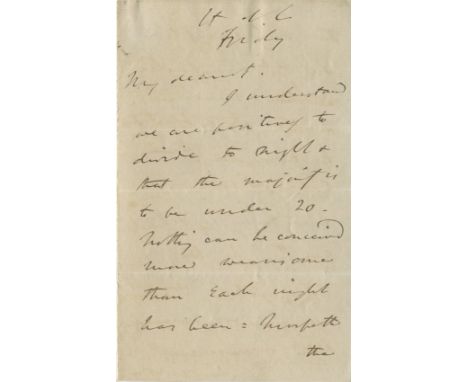 H. of C
Friday.
My dearest.
I understand
we are positively to
divide to night &
that the majority is
to be under 20 -
Nothing can be conceived
more wearisome
than Each night
has been = Morpeth
the